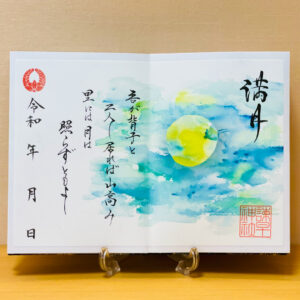 満月
吾が背子と
二人し居れば山高み
里には月は
照らずともよし
令和 年 月 日